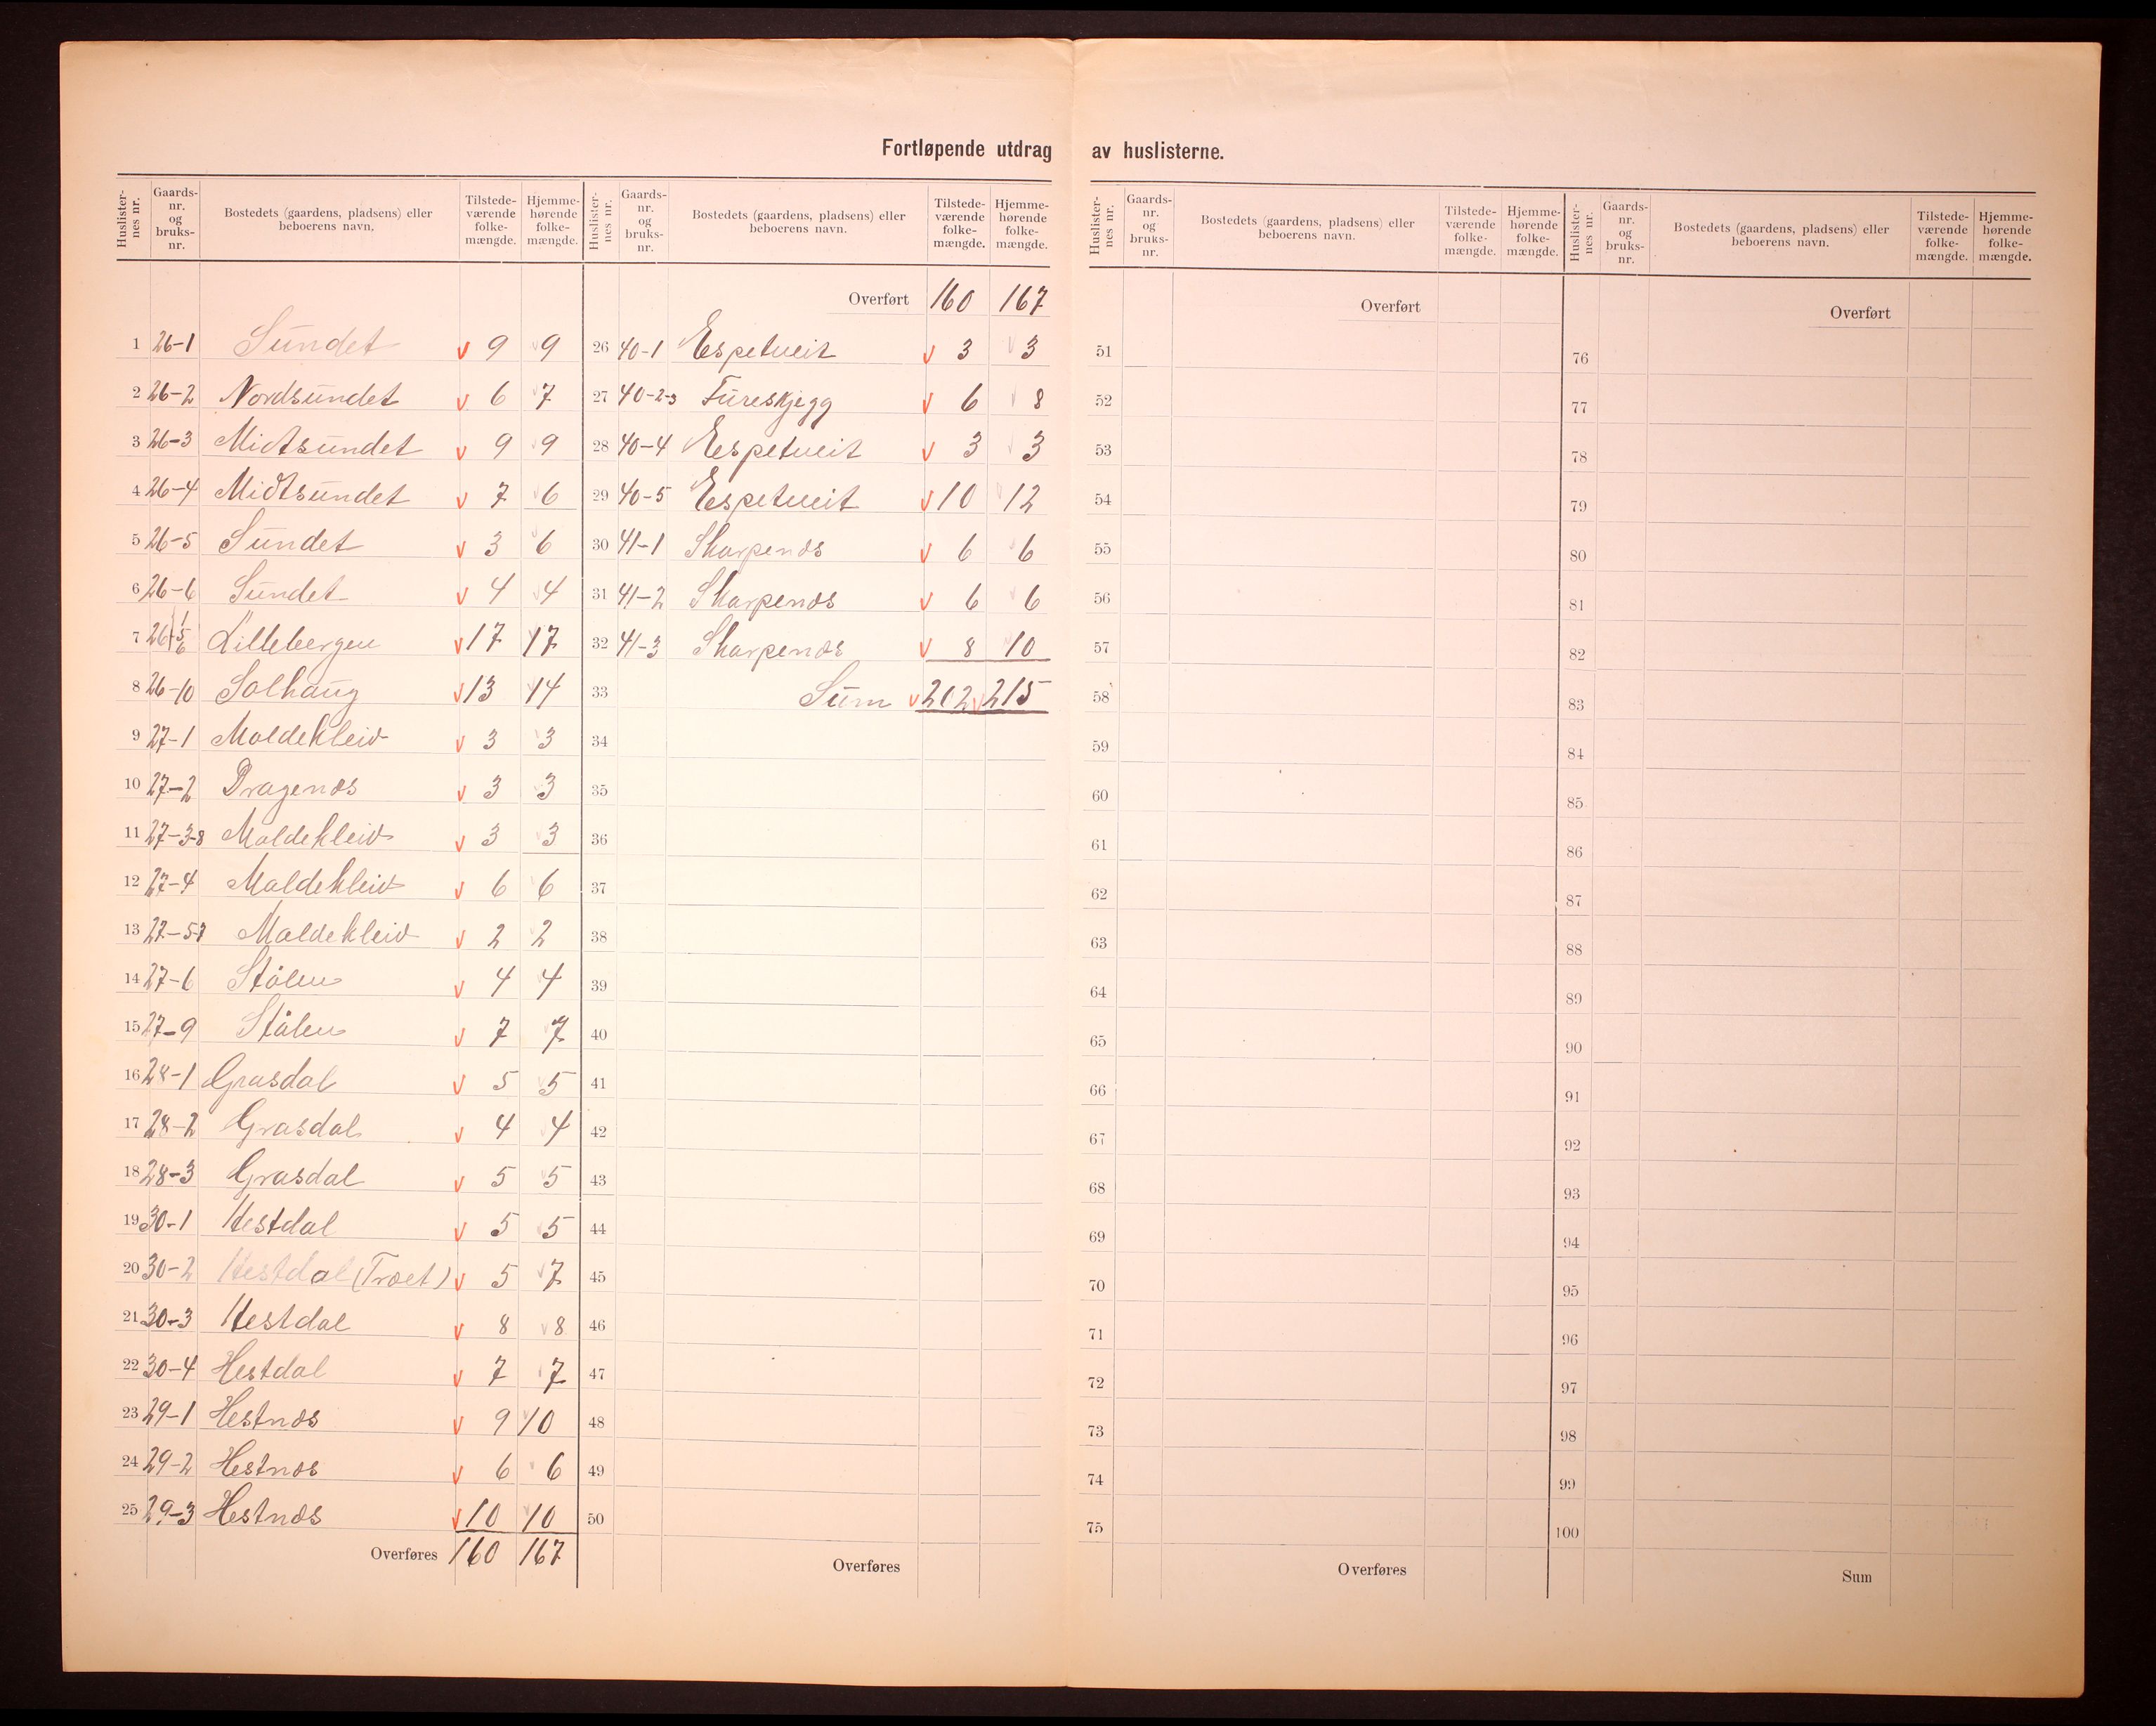 Fortløpende utdrag av huslisterne.
Huslisternes nr. Gaards-nr. og bruks-nr. Bostedets (gaardens, pladsens) eller beboerens navn. Tilstedeværende folkemængde. Hjemmehørende folkemængde.
1 26-1 Sundet 9 9
2 26-2 Nordsundet 6 7
3 26-3 Midtsundet 9 9
4 26-4 Midtsundet 7 6
5 26-5 Sundet 3 6
6 26-6 Sundet 4 4
7 26 1/5/6 Lillebergen 17 17
8 26-10 Solhaug 13 14
9 27-1 Moldekleiv 3 3
10 27-2 Dragenes 3 3
11 27-3-8 Moldekleiv 3 3
12 27-4 Moldekleiv 6 6
13 27-5-7 Moldekleiv 2 2
14 27-6 Stålen 4 4
15 27-9 Stålen 7 7
16 28-1 Grasdal 5 5
17 28-2 Grasdal 4 4
18 28-3 Grasdal 5 5
19 30-1 Hestdal 5 5
20 30-2 Hestdal (Træet) 5 7
21 30-3 Hestdal 8 8
22 30-4 Hestdal 7 7
23 29-1 Hestnæs 9 10
24 29-2 Hestnæs 6 6
25 29-3 Hestnæs 10 10
Overføres 160 167
Huslisternes nr. Gaards-nr. og bruks-nr. Bostedets (gaardens, pladsens) eller beboerens navn. Tilstedeværende folkemængde. Hjemmehørende folkemængde.
Overført 160 167
26 40-1 Espetveit 3 3
27 40-2-3 Tureskjegg 6 8
28 40-4 Espetveit 3 3
29 40-5 Espetveit 10 12
30 41-1 Skarpenæs 6 6
31 41-2 Skarpenæs 6 6
32 41-3 Skarpenæs 8 10
33 Sum 202 215
34
35
36
37
38
39
40
41
42
43
44
45
46
47
48
49
50
Overføres
Huslisternes nr. Gaards-nr. og bruks-nr. Bostedets (gaardens, pladsens) eller beboerens navn. Tilstedeværende folkemængde. Hjemmehørende folkemængde.
Overført
51
52
53
54
55
56
57
58
59
60
61
62
63
64
65
66
67
68
69
70
71
72
73
74
75
Overføres
Huslisternes nr. Gaards-nr. og bruks-nr. Bostedets (gaardens, pladsens) eller beboerens navn. Tilstedeværende folkemængde. Hjemmehørende folkemængde.
Overført
76
77
78
79
80
81
82
83
84
85
86
87
88
89
90
91
92
93
94
95
96
97
98
99
100
Sum